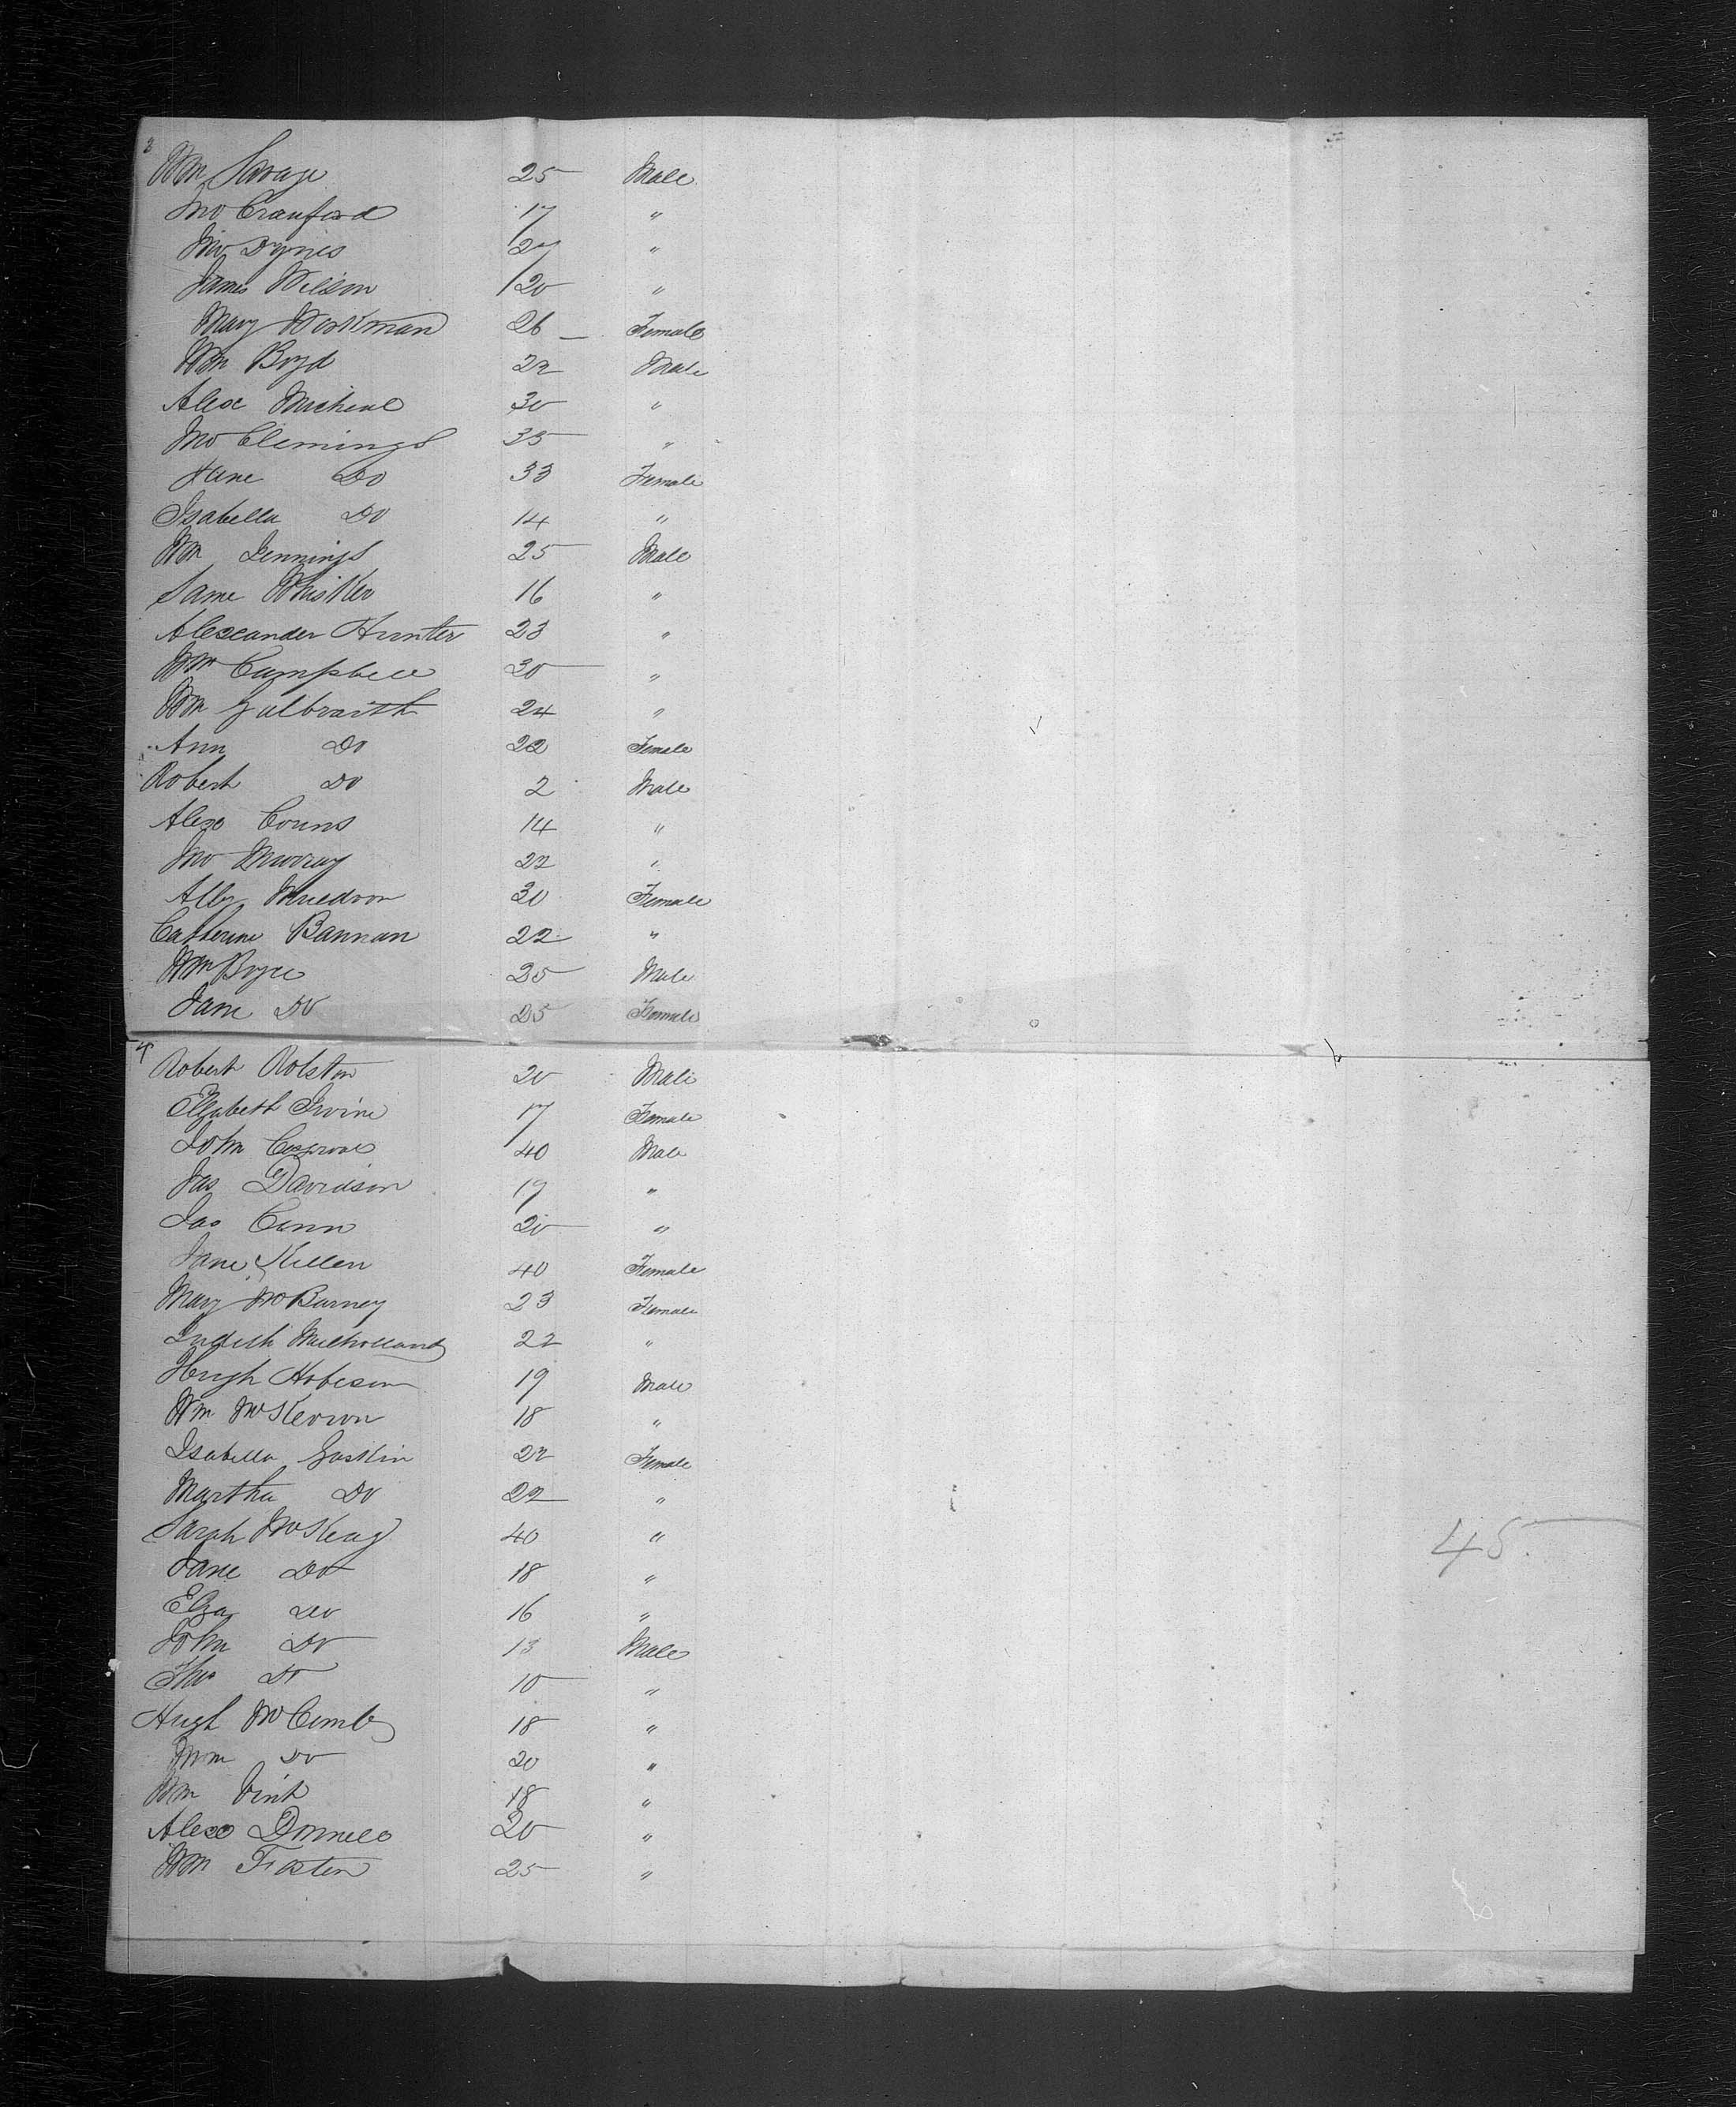 3
Wm Savage 25 Male
Jno Crauford 17 "
Jno Dynes 27 "
James Wilson 20 "
Mary Workman 26 Female
Wm Boyd 22 Male
Alex Micheal 30 "
Jno Clemings 35 "
Jane Do 33 Female
Isabella Do 14 "
Wm Jennings 25 Male
Same Whisker 16 "
Alexander Hunter 23 "
Wm Campbell 30 "
Wm Galbraith 24 "
Ann Do 22 Female
Robert Do 2 Male
Alex 14 "
Jno Murray 22 "
Alby Muldron 30 Female
Catherine Bannan 22 "
Wm Boyce 25 Male
Jane Do 25 Female
4
Robert Rolston 20 Male
Elizabeth Irvine 17 Female
John 40 Male
Jas Davidson 19 "
Jas Cann 20 "
Jane Killen 40 Female
Mary McBurney 23 Female
Judith Mulholland 22 "
Hugh 19 Male
Wm McKeown 18 "
Isabella Gaskin 22 Female
Martha Do 22 "
Sarah McKeag 40 "
Jane Do 18 "
Eliza Do 16 "
John Do 13 Male
Thos Do 10 "
Hugh McComb 18 "
Wm Do 20 "
Wm Vint 18 "
Alex Donnell 20 "
Wm Foster 25 "
45